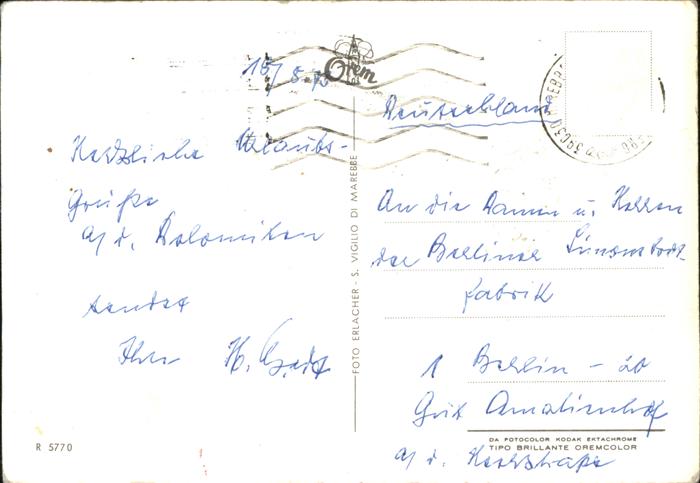 15/8.
Orem
Deutschland
Herzliche Urlaubs-
Grüße
a/ d. Dolomiten
sendet
Ihr H.
An die Damen u. Herren
der Berliner
fabrik
1 Berlin - 20
Gut Amalienhof
a/ d. Heerstraße
FOTO ERLACHER - S. VIGILIO DI MAREBBE
R 5770
DA FOTOCOLOR KODAK EKTACHROME
TIPO BRILLANTE OREMCOLOR